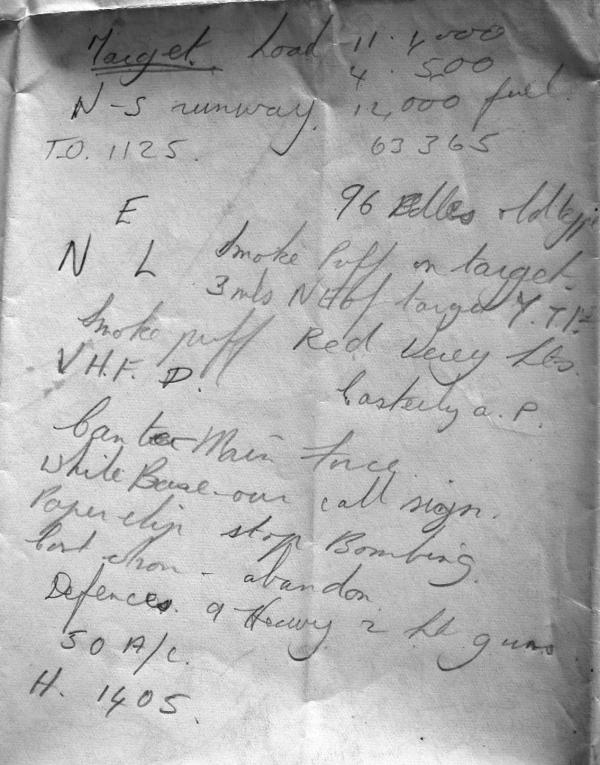 Target. Load 11. 1,000
4. 500
N-S runway. 12,000 fuel.
T.O. 1125. 63365
E 96 old type
N L Smoke Puff on target.
3 mls N of target Y.
Smoke puff Red Verey Lts.
V.H.F. D. Easterly a. P.
Main Force
White Base - our call sign.
Paper clip stop Bombing.
- abandon.
Defences. 9 Heavy 2 Lt guns
50 A/c.
H. 1405.